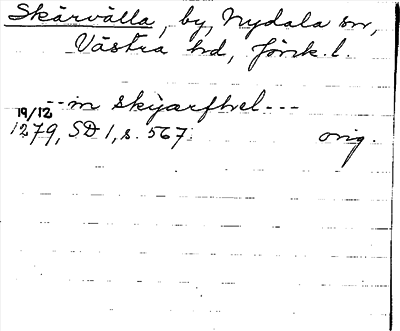 Skärvälla, by, Nydala sn,
Västra hd, Jönk. l.
--in skyarfhel---
19/12
1279, SD 1, s. 567. orig.